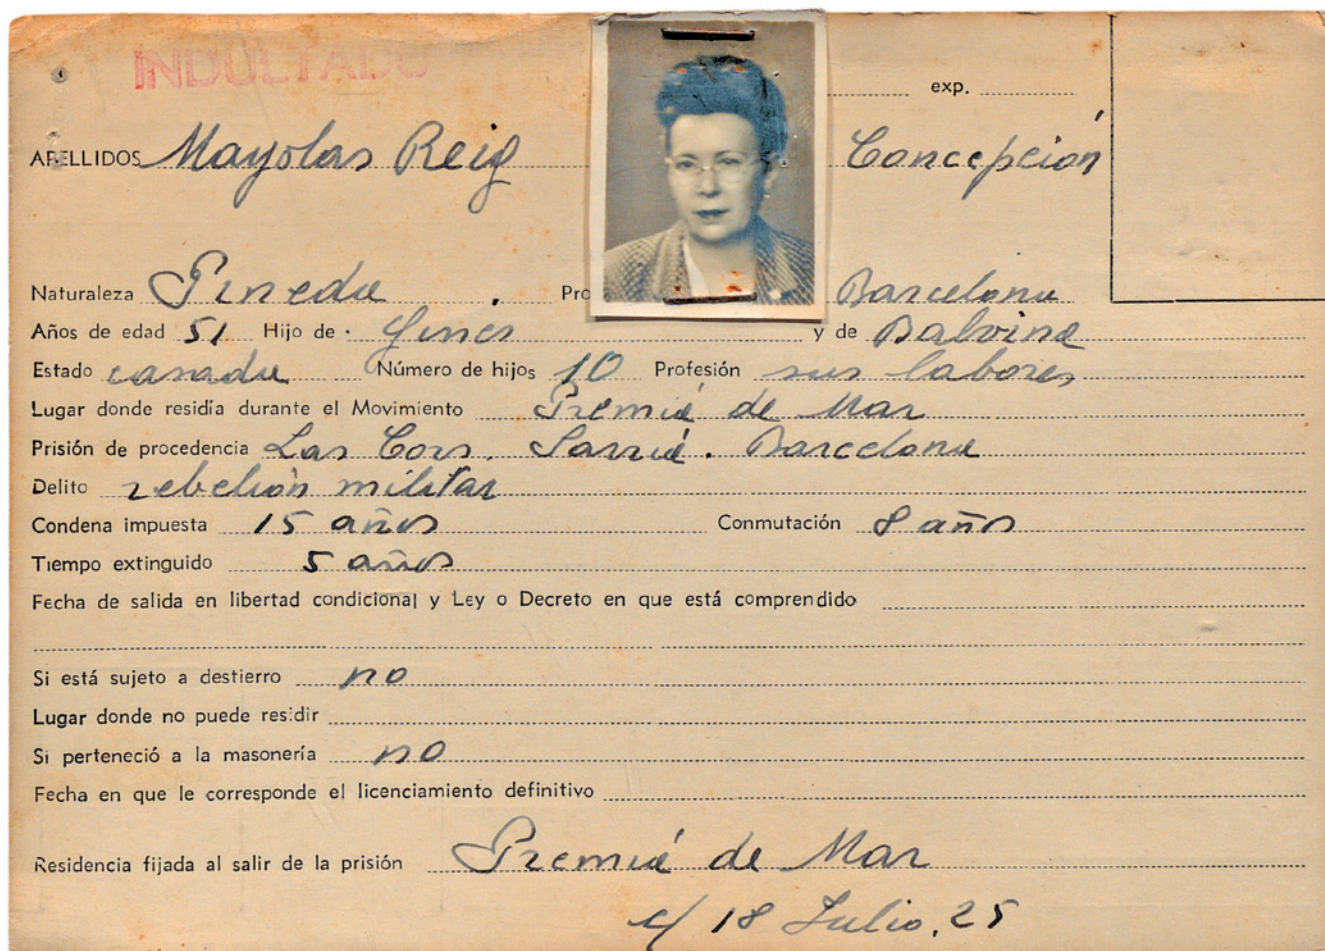 INDULTADO
exp.
APELLIDOS Mayolas Reig Concepción
Naturaleza Pineda. Pro Barcelona
Años de edad 51 Hijo de Ginés y de Balvina
Estado casada Número de hijos 10 Profesión sus labores
Lugar donde residía durante el Movimiento Premiá de Mar
Prisión de procedencia Las Cors. Sarriá. Barcelona
Delito rebelión militar
Condena impuesta 15 años Conmutación 8 años
Tiempo extinguido 5 años
Fecha de salida en libertad condicional y Ley o Decreto en que está comprendido
Si está sujeto a destierro no
Lugar donde no puede residir
Si perteneció a la masonería no
Fecha en que le corresponde el licenciamiento definitivo
Residencia fijada al salir de la prisión Premiá de Mar
c/ 18 Julio, 25